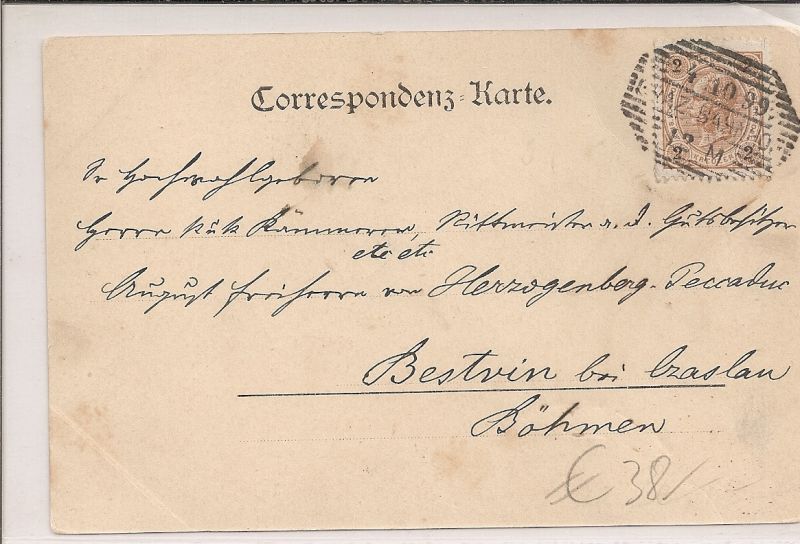 Correspondenz-Karte.
2 2
1 10 99
2 2
Sr Hochwohlgeboren
Herrn k u k Kämmerer, Rittmeister a. d. Gutsbesitzer
etc etc
August Freiherrn von Herzogenberg-Peccaduc
Bestvin bei Czaslau
Böhmen
€ 38/